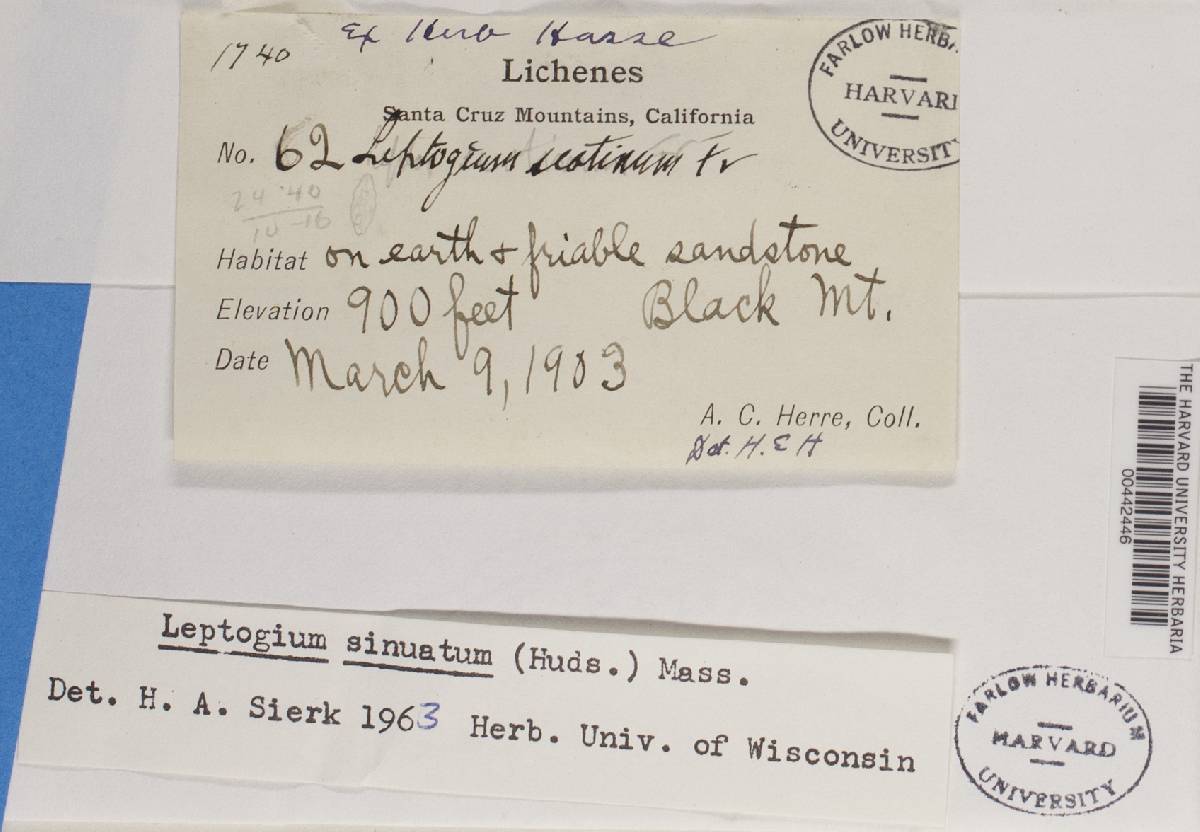 Ex Herb Hasse
1740
Lichenes
Santa Cruz Mountains, California
No. 62 Leptogium scotinum Fr
24 40
10 -16
Habitat on earth & friable sandstone
Elevation 900 feet Black Mt.
Date March 9, 1903
A. C. Herre, Coll.
Det. H. E H
FARLOW HERBA
HARVARD
UNIVERSITY
THE HARVARD UNIVERSITY HERBARIA
00442446
Leptogium sinuatum (Huds.) Mass.
Det. H. A. Sierk 1963 Herb. Univ. of Wisconsin
FARLOW HERBARIUM
HARVARD
UNIVERSITY